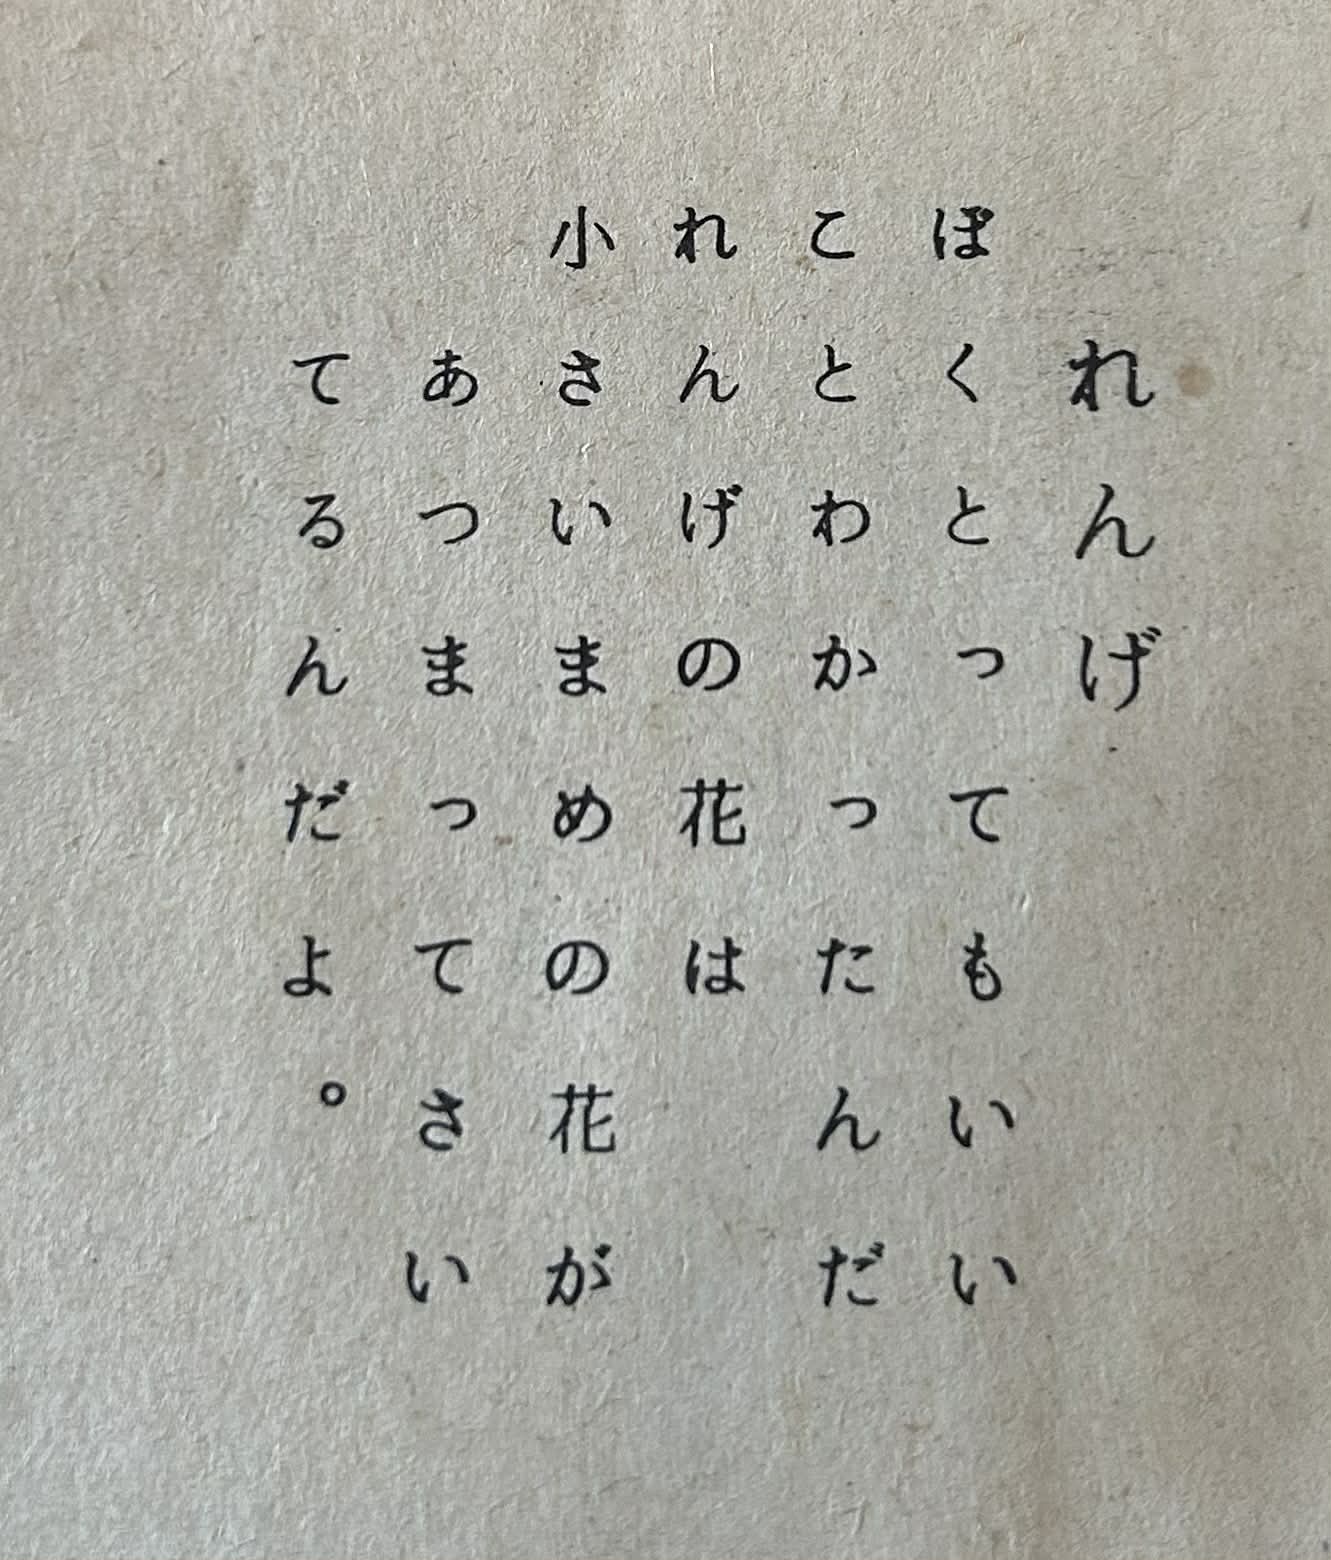 れんげ
ぼくとってもいい
ことわかったんだ
れんげの花は
小さいまめの花が
あつまってさい
てるんだよ。